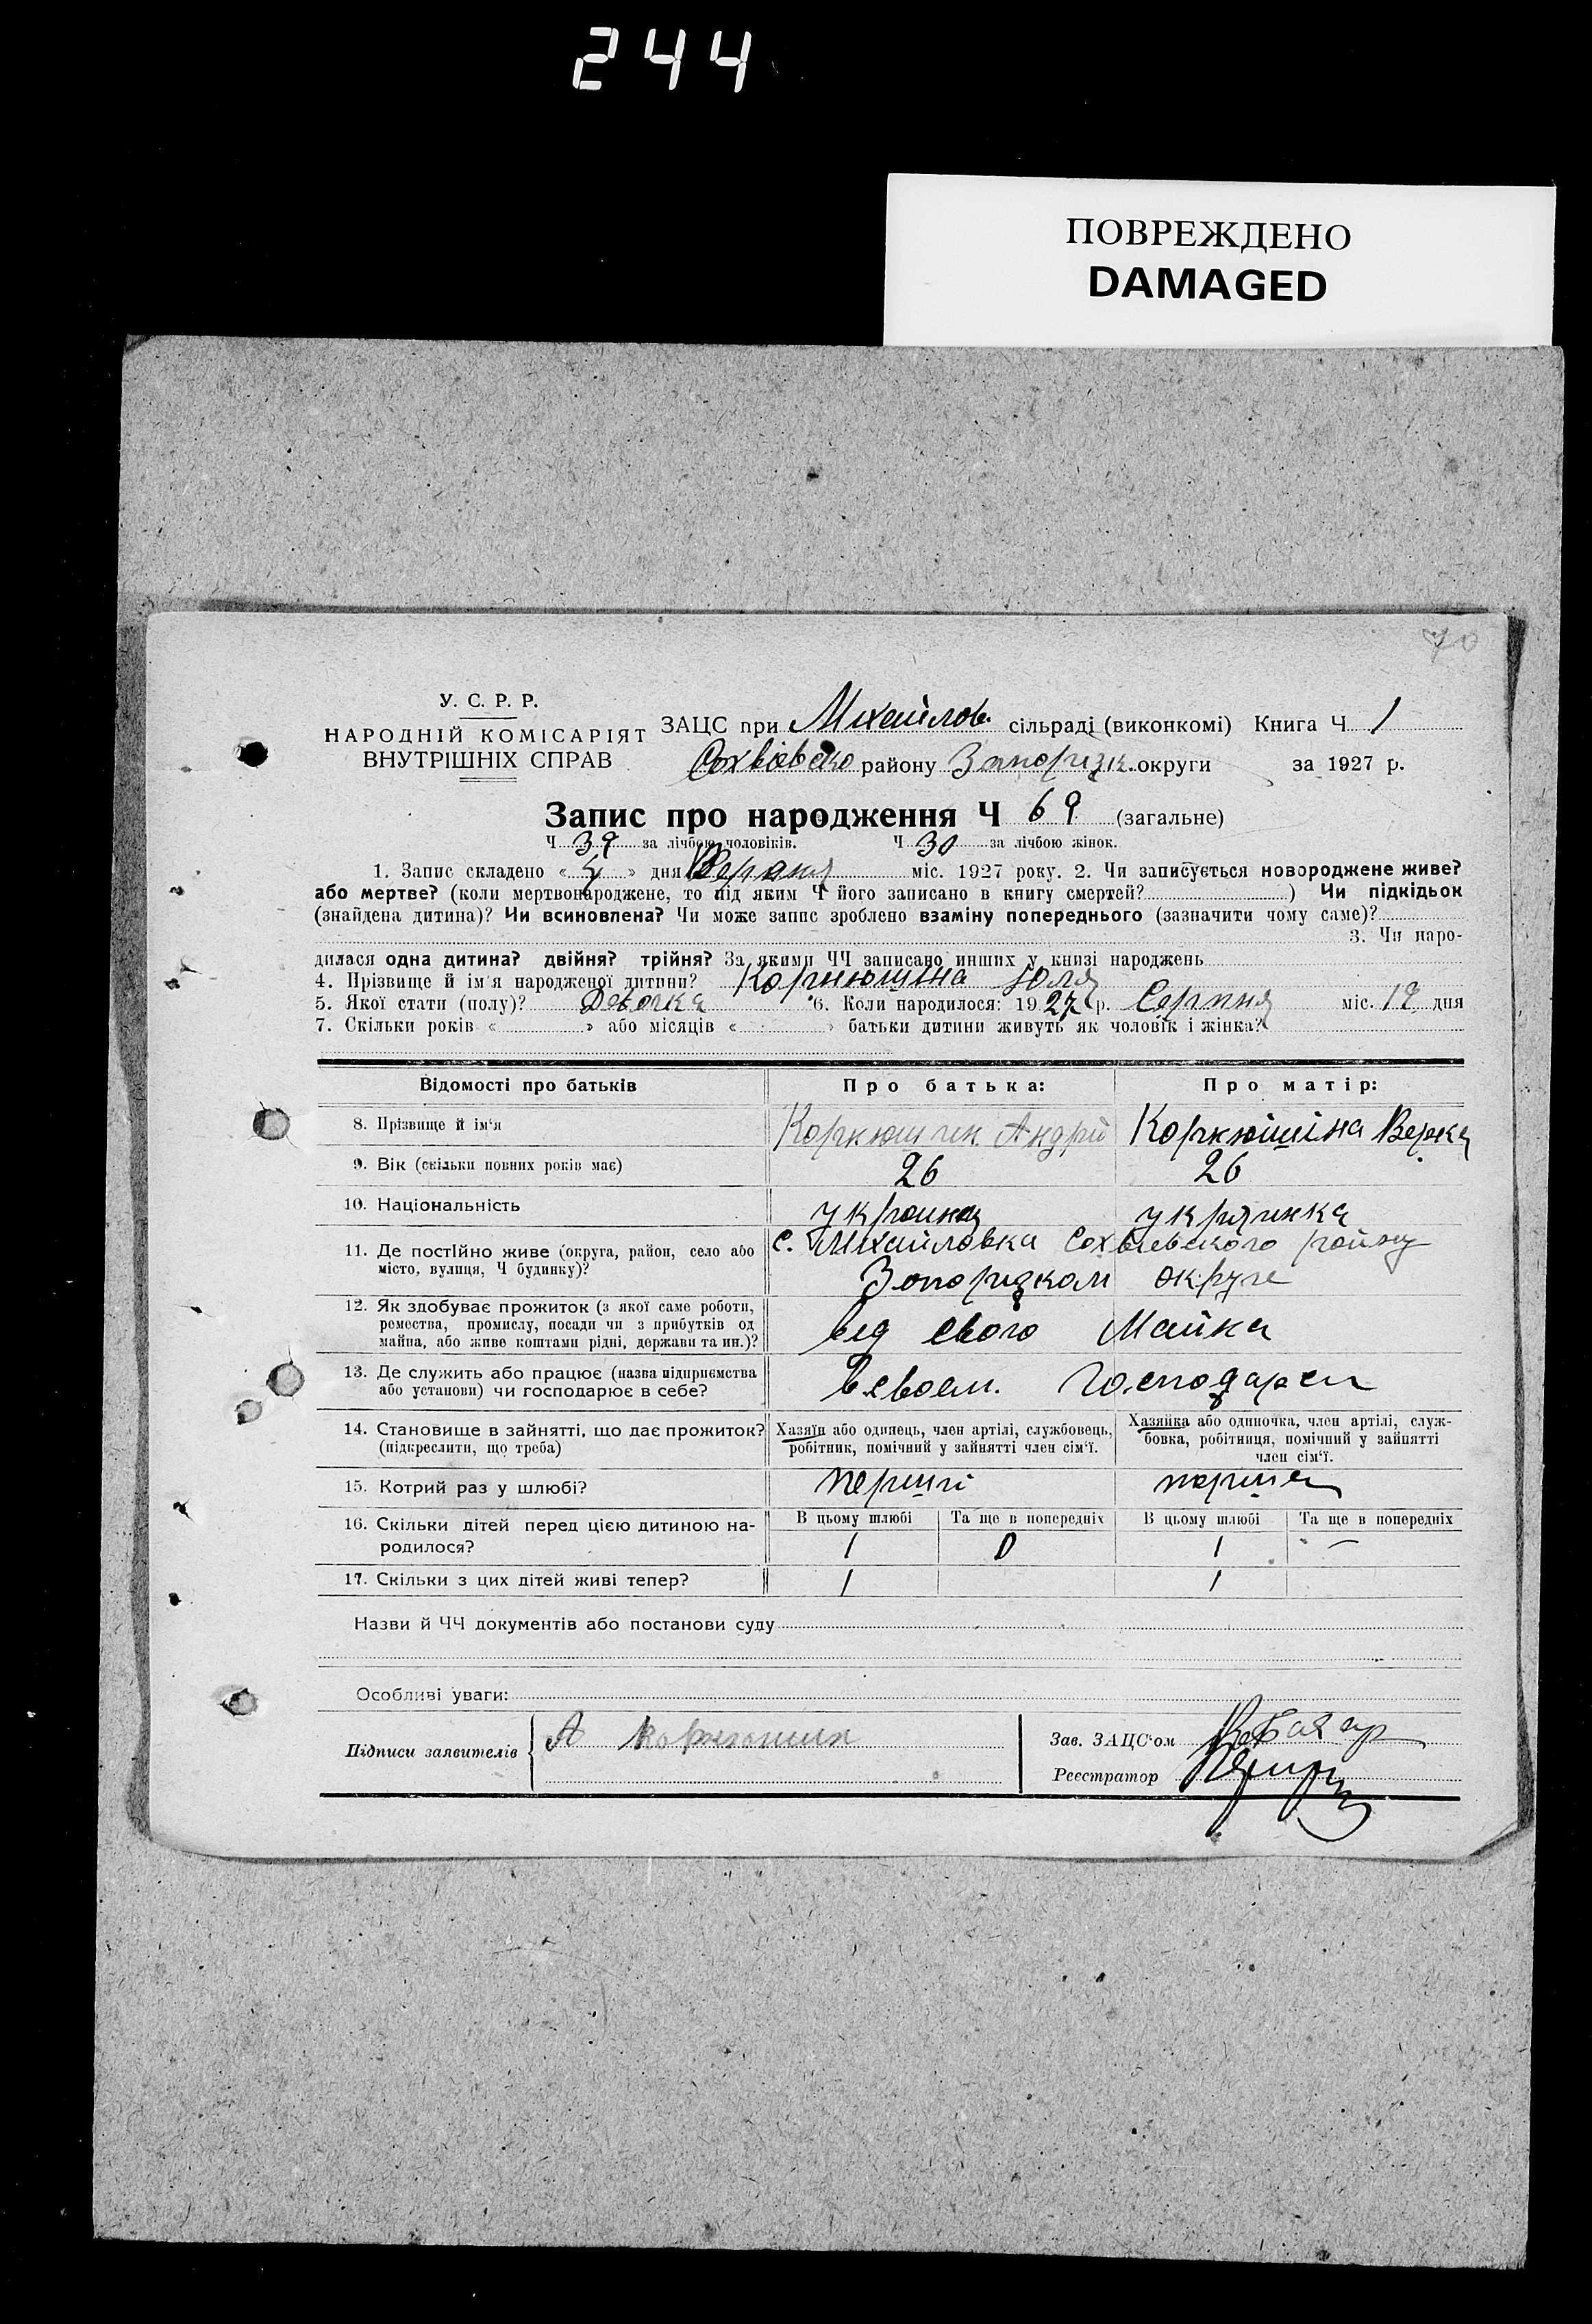 244
ПОВРЕЖДЕНО
DAMAGED
70
У. С. Р. Р.
НАРОДНІЙ КОМІСАРІЯТ
ВНУТРІШНІХ СПРАВ
ЗАЦС при Михайлов. сільраді (виконкомі) Книга Ч 1
району округи за 1927 р.
Запис про народження Ч 69 (загальне)
Ч 39 за лічбою чоловіків. Ч 30 за лічбою жінок.
1. Запис складено « » дня міс. 1927 року. 2. Чи записується новороджене живе?
або мертве? (коли мертвонароджене, то під яким Ч його записано в книгу смертей? ) Чи підкідьок
(знайдена дитина)? Чи всиновлена? Чи може запис зроблено взаміну попереднього (зазначити чому саме)?
3. Чи наро-
дилася одна дитина? двійня? трійня? За якими ЧЧ записано инших у книзі народжень
4. Прізвище й ім'я народженої дитини? Корнюшина Юля
5. Якої стати (полу)? Девочка 6. Коли народилося: 1927 р. Серпня міс. 19 дня
7. Скільки років « » або місяців « » батьки дитини живуть як чоловік і жінка?
Відомості про батьків Про батька: Про матір:
8. Прізвище й ім'я Корнюшин Андрій
9. Вік (скільки повних років має) 26 26
10. Національність украинка
11. Де постійно живе (округа, район, село або
місто, вулиця, Ч будинку)?
с. Михайловка района
округе
12. Як здобуває прожиток (з якої саме роботи,
ремества, промислу, посади чи з прибутків од
майна, або живе коштами рідні, держави та ин.)?
від свого Майна
13. Де служить або працює (назва підприємства
або установи) чи господарює в себе?
в своем. Господарси
14. Становище в зайнятті, що дає прожиток?
(підкреслити, що треба)
Хазяїн або одинець, член артілі, службовець,
робітник, помічний у зайнятті член сім'ї.
Хазяйка або одиночка, член артілі, служ-
бовка, робітниця, помічний у зайнятті
член сім'ї.
15. Котрий раз у шлюбі? перший перша
16. Скільки дітей перед цією дитиною на-
родилося?
В цьому шлюбі Та ще в попередніх В цьому шлюбі Та ще в попередніх
1 0 1 –
17. Скільки з цих дітей живі тепер? 1 1
Назви й ЧЧ документів або постанови суду
Особливі уваги:
Підписи заявителів А Корнюшин
Зав. ЗАЦС'ом
Реєстратор